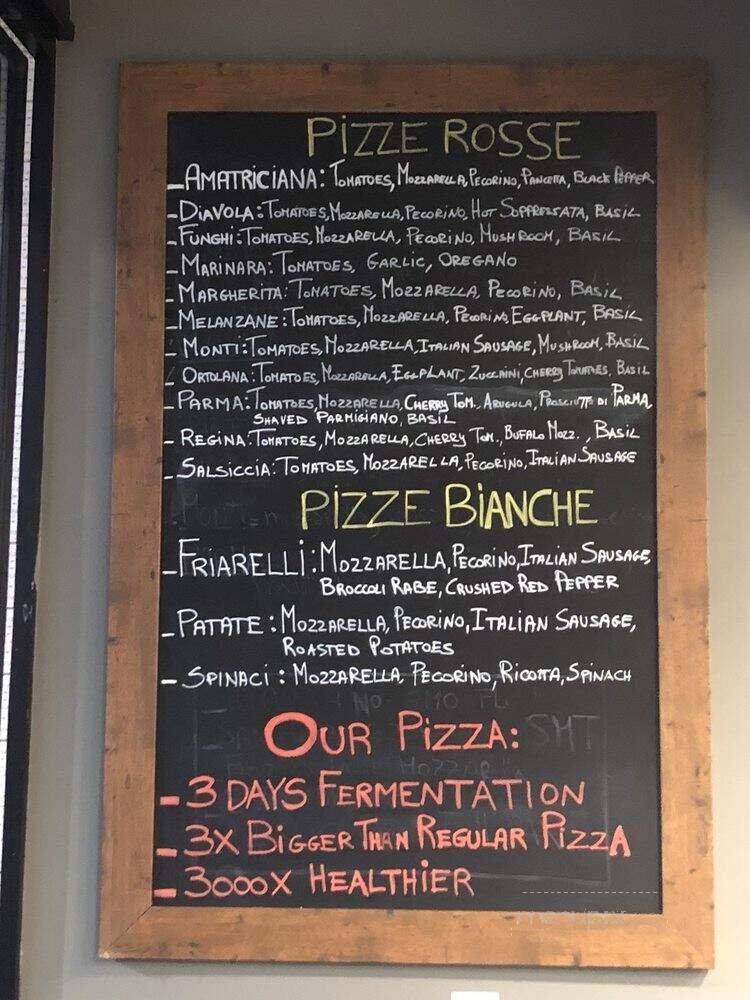 PIZZE ROSSE
- AMATRICIANA: TOMATOES, MOZZARELLA, PECORINO, PANCETTA, BLACK PEPPER
- DIAVOLA: TOMATOES, MOZZARELLA, PECORINO, HOT SOPPRESSATA, BASIL
- FUNGHI: TOMATOES, MOZZARELLA, PECORINO, MUSHROOM, BASIL
- MARINARA: TOMATOES, GARLIC, OREGANO
- MARGHERITA: TOMATOES, MOZZARELLA, PECORINO, BASIL
- MELANZANE: TOMATOES, MOZZARELLA, PECORINO, EGGPLANT, BASIL
- MONTI: TOMATOES, MOZZARELLA, ITALIAN SAUSAGE, MUSHROOM, BASIL
- ORTOLANA: TOMATOES, MOZZARELLA, EGGPLANT, ZUCCHINI, CHERRY TOMATOES, BASIL
- PARMA: TOMATOES, MOZZARELLA, CHERRY TOM., ARUGULA, PROSCIUTTO DI PARMA,
SHAVED PARMIGIANO, BASIL
- REGINA: TOMATOES, MOZZARELLA, CHERRY TOM., BUFALO MOZZ., BASIL
- SALSICCIA: TOMATOES, MOZZARELLA, PECORINO, ITALIAN SAUSAGE
PIZZE BIANCHE
- FRIARELLI: MOZZARELLA, PECORINO, ITALIAN SAUSAGE,
BROCCOLI RABE, CRUSHED RED PEPPER
- PATATE: MOZZARELLA, PECORINO, ITALIAN SAUSAGE,
ROASTED POTATOES
- SPINACI: MOZZARELLA, PECORINO, RICOTTA, SPINACH
OUR PIZZA:
- 3 DAYS FERMENTATION
- 3X BIGGER THAN REGULAR PIZZA
- 3000X HEALTHIER